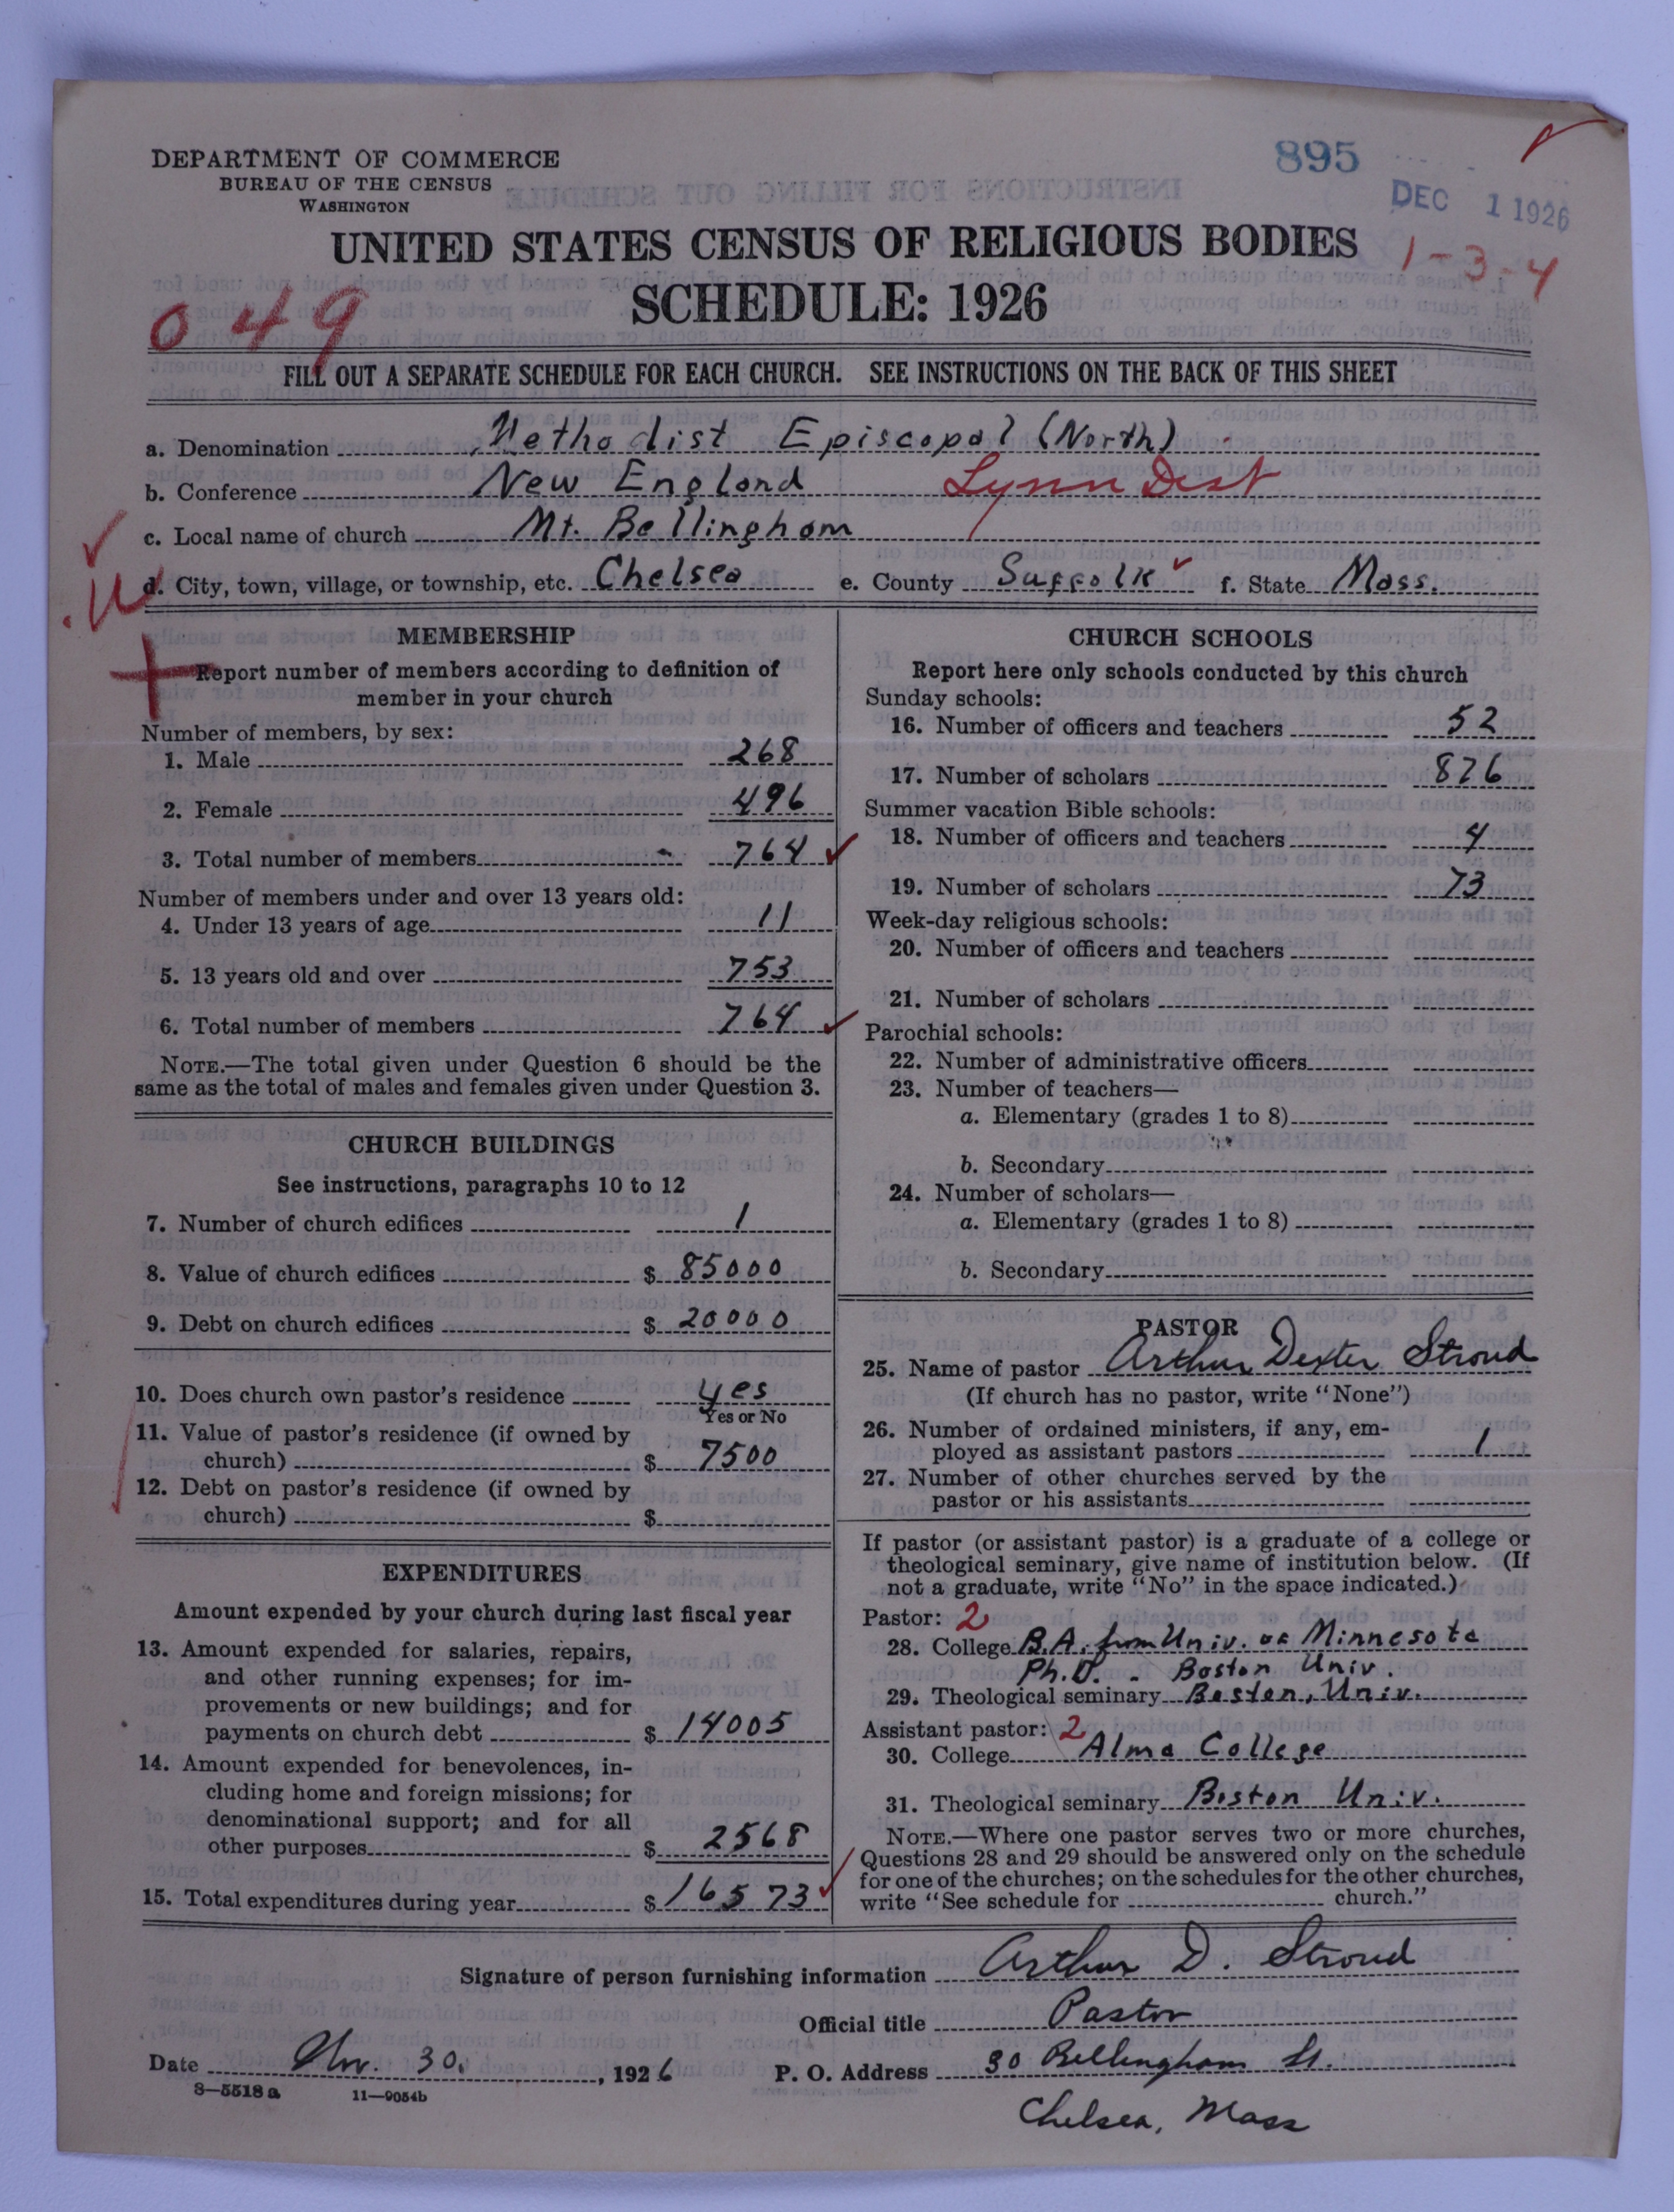 DEPARTMENT OF COMMERCE
BUREAU OF THE CENSUS
WASHINGTON
895
DEC 1 1926
UNITED STATES CENSUS OF RELIGIOUS BODIES
1-3-4
SCHEDULE: 1926
049
FILL OUT A SEPARATE SCHEDULE FOR EACH CHURCH. SEE INSTRUCTIONS ON THE BACK OF THIS SHEET
a. Denomination Methodist Episcopal (North)
b. Conference New England Lynn Dist
c. Local name of church Mt. Bellingham
d. City, town, village, or township, etc. Chelsea e. County Suffolk f. State Mass.
MEMBERSHIP
Report number of members according to definition of
member in your church
Number of members, by sex:
1. Male 268
2. Female 496
3. Total number of members 764
Number of members under and over 13 years old:
4. Under 13 years of age 11
5. 13 years old and over 753
6. Total number of members 764
NOTE.—The total given under Question 6 should be the
same as the total of males and females given under Question 3.
CHURCH BUILDINGS
See instructions, paragraphs 10 to 12
7. Number of church edifices 1
8. Value of church edifices $ 85000
9. Debt on church edifices $ 20000
10. Does church own pastor's residence yes
Yes or No
11. Value of pastor's residence (if owned by
church) $ 7500
12. Debt on pastor's residence (if owned by
church) $
EXPENDITURES
Amount expended by your church during last fiscal year
13. Amount expended for salaries, repairs,
and other running expenses; for im-
provements or new buildings; and for
payments on church debt $ 14005
14. Amount expended for benevolences, in-
cluding home and foreign missions; for
denominational support; and for all
other purposes $ 2568
15. Total expenditures during year $ 16573
CHURCH SCHOOLS
Report here only schools conducted by this church
Sunday schools:
16. Number of officers and teachers 52
17. Number of scholars 826
Summer vacation Bible schools:
18. Number of officers and teachers 4
19. Number of scholars 73
Week-day religious schools:
20. Number of officers and teachers
21. Number of scholars
Parochial schools:
22. Number of administrative officers
23. Number of teachers—
a. Elementary (grades 1 to 8)
b. Secondary
24. Number of scholars—
a. Elementary (grades 1 to 8)
b. Secondary
PASTOR
25. Name of pastor Arthur Dexter Stroud
(If church has no pastor, write "None")
26. Number of ordained ministers, if any, em-
ployed as assistant pastors 1
27. Number of other churches served by the
pastor or his assistants
If pastor (or assistant pastor) is a graduate of a college or
theological seminary, give name of institution below. (If
not a graduate, write "No" in the space indicated.)
Pastor: 2
28. College B.A. from Univ. of Minnesota
Ph.D. - Boston Univ.
29. Theological seminary Boston, Univ.
Assistant pastor: 2
30. College Alma College
31. Theological seminary Boston Univ.
NOTE.—Where one pastor serves two or more churches,
Questions 28 and 29 should be answered only on the schedule
for one of the churches; on the schedules for the other churches,
write "See schedule for church."
Signature of person furnishing information Arthur D. Stroud
Official title Pastor
Date Nov. 30, 1926 P. O. Address 30 Bellingham St.
8—5518 a 11—9054b
Chelsea, Mass